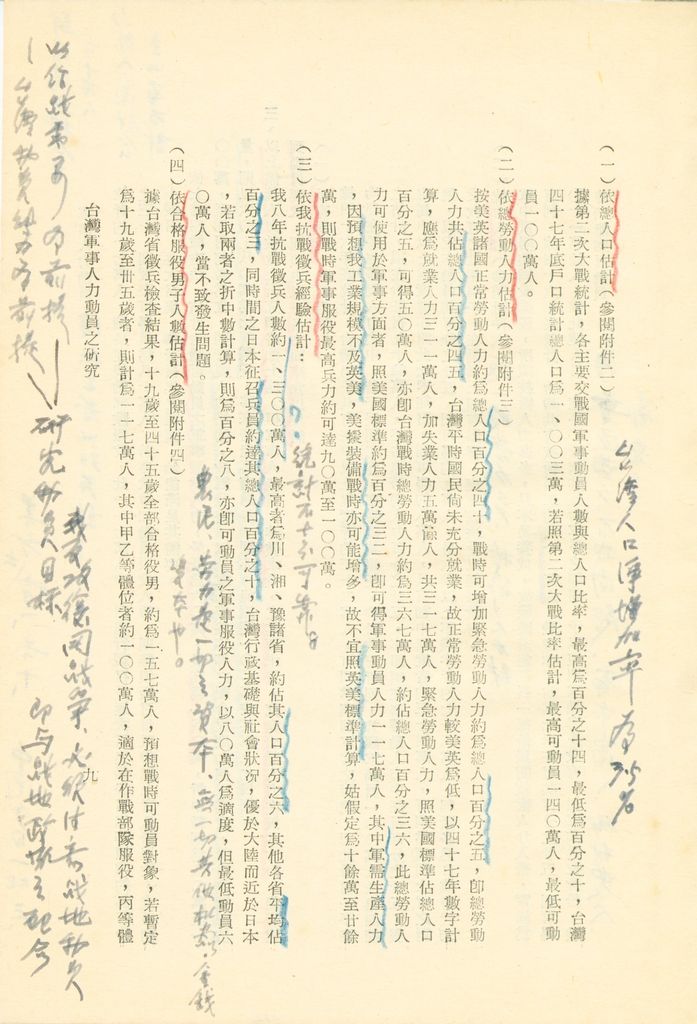 （一）依總人口估計（參閱附件二）
據第二次大戰統計，各主要交戰國軍事動員人數與總人口比率，最高爲百分之十四，最低爲百分之十，台灣
四十七年底戶口統計總人口爲一、〇〇三萬，若照第二次大戰比率估計，最高可動員一四〇萬人，最低可動
員一〇〇萬人。
（二）依總勞動人力估計（參閱附件三）
按美英諸國正常勞動人力約爲總人口百分之四十，戰時可增加緊急勞動人力約爲總人口百分之五，卽總勞動
人力共佔總人口百分之四五，台灣平時國民尙未充分就業，故正常勞動人力較美英爲低，以四十七年數字計
算，應爲就業人力三一一萬人，加失業人力五萬餘人，共三一七萬人，緊急勞動人力，照美國標準佔總人口
百分之五，可得五〇萬人，亦卽台灣戰時總勞動人力約爲三六七萬人，約佔總人口百分之三六，此總勞動人
力可使用於軍事方面者，照美國標準約爲百分之三二，卽可得軍事動員人力一一七萬人，其中軍需生產人力
，因預想我工業規模不及英美，美援裝備戰時亦可能增多，故不宜照英美標準計算，姑假定爲十餘萬至廿餘
萬，則戰時軍事服役最高兵力約可達九〇萬至一〇〇萬。
（三）依我抗戰徵兵經驗估計：
我八年抗戰徵兵人數約一、三〇〇萬人，最高者爲川、湘、豫諸省，約佔其人口百分之六，其他各省平均佔
百分之三，同時間之日本征召兵員約達其總人口百分之十，台灣行政基礎與社會狀況，優於大陸而近於日本
，若取兩者之折中數計算，則爲百分之八，亦卽可動員之軍事服役人力，以八〇萬人爲適度，但最低動員六
〇萬人，當不致發生問題。
（四）依合格服役男子人數估計（參閱附件四）
據台灣省徵兵檢查結果，十九歲至四十五歲全部合格役男，約爲一五七萬人，預想戰時可動員對象，若暫定
爲十九歲至卅五歲者，則計爲一一七萬人，其中甲乙等體位者約一〇〇萬人，適於在作戰部隊服役，丙等體
台灣軍事人力動員之研究
九
台灣人口淨增加率為35‰
？·統計不十分可靠。
農民、苦力是一切之資本、無一切其他機器、金錢
資本也。
研究動員目標
即与戰地政務之配合